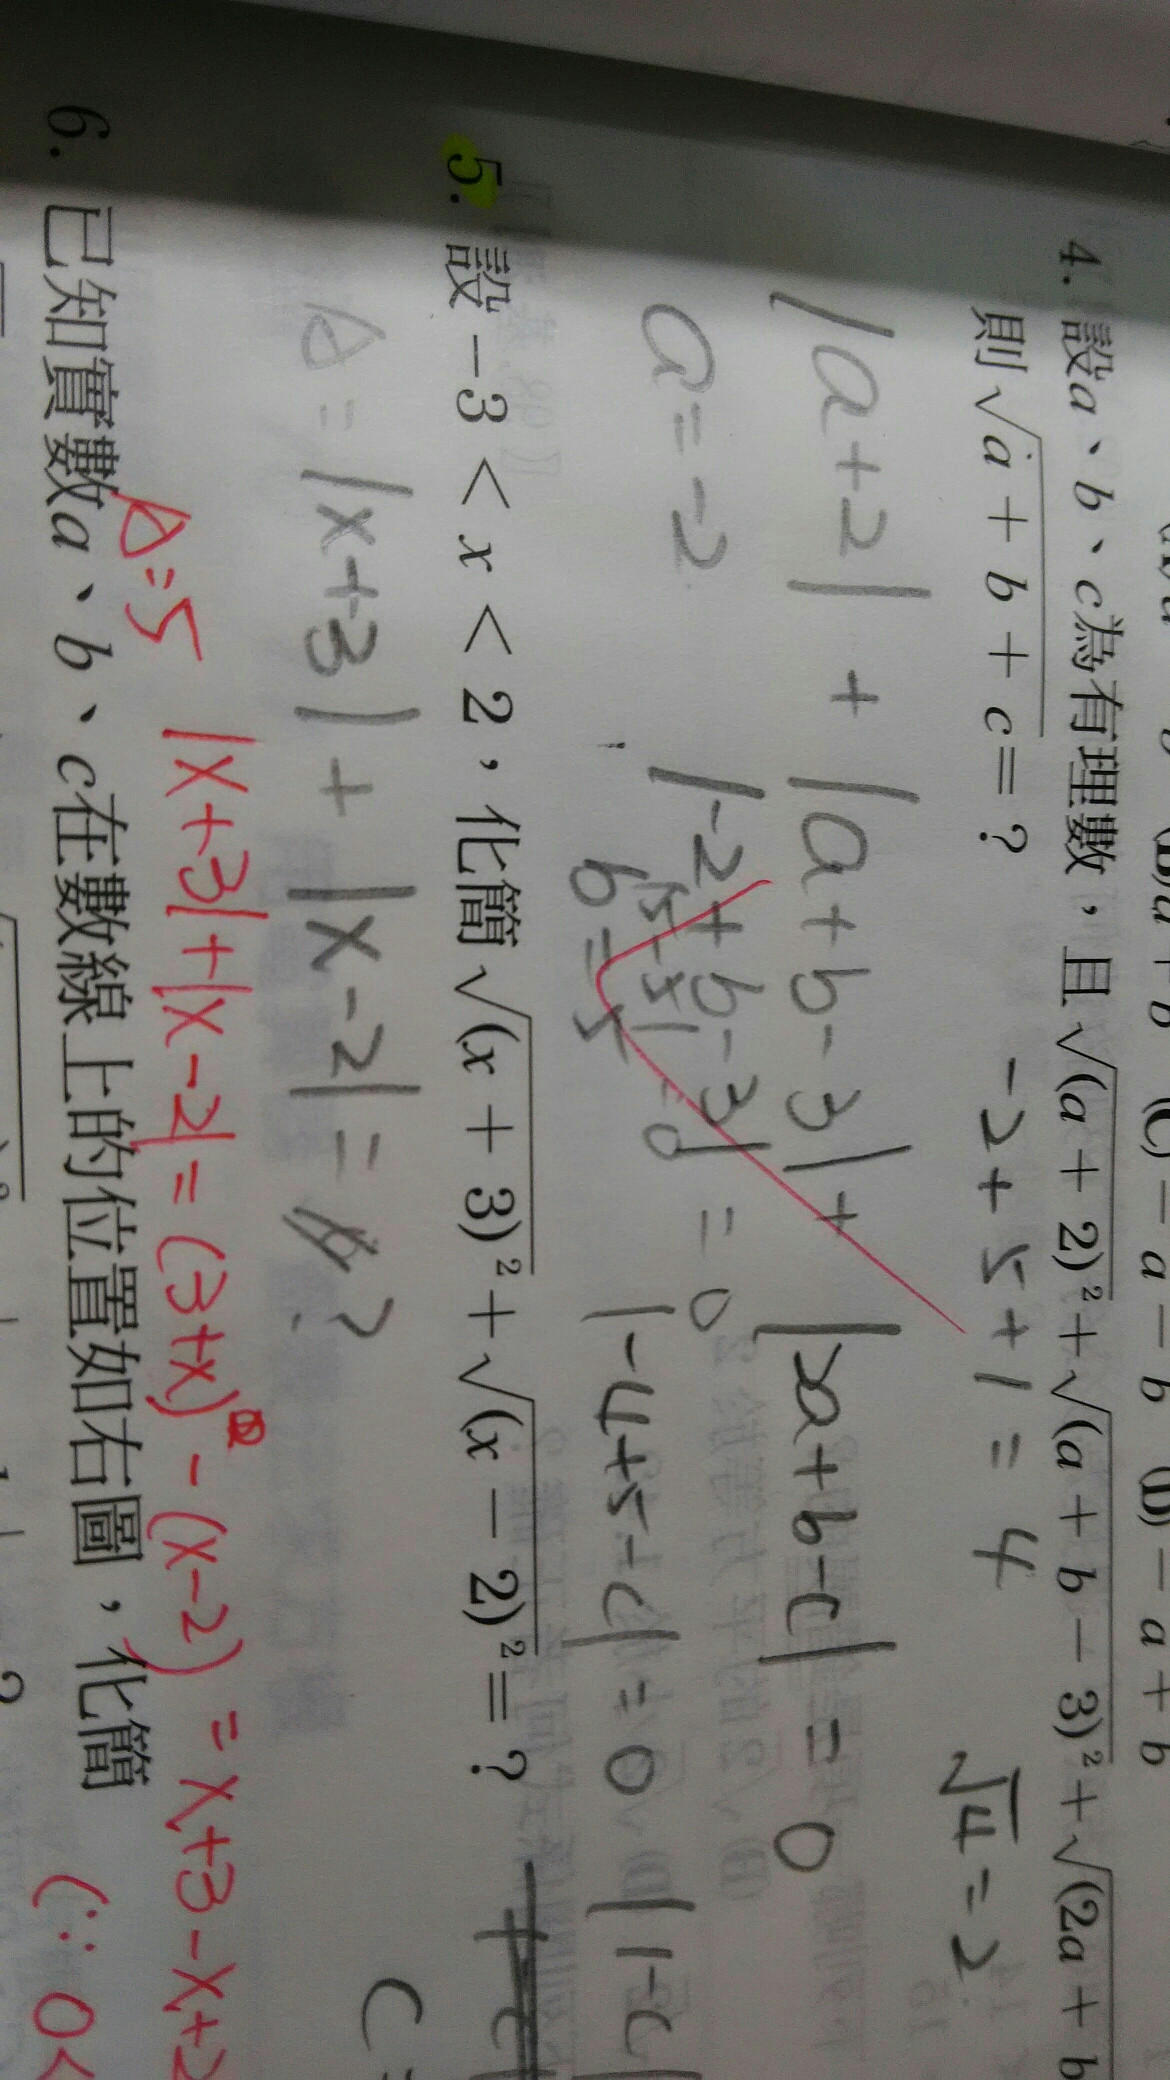 (C) − a − b (D) − a + b
4. 設a、b、c為有理數，且√(a + 2)²+√(a + b − 3)²+√(2a + b
則√a + b + c= ? -2+5+1=4 √4=2
|a+2| + |a+b-3| + |2a+b-c| = 0
a=-2 |-2+b-3| = 0 |-4+5-c|=0 |1-c|
b=5
5. 設 −3 < x < 2，化簡√(x + 3)²+√(x − 2)²= ?
Δ=|x+3|+|x-2|= ?
Δ=5 |x+3|+|x-2|=(3+x)-(x-2)=x+3-x+2
6. 已知實數a、b、c在數線上的位置如右圖，化簡
(∵ 0<